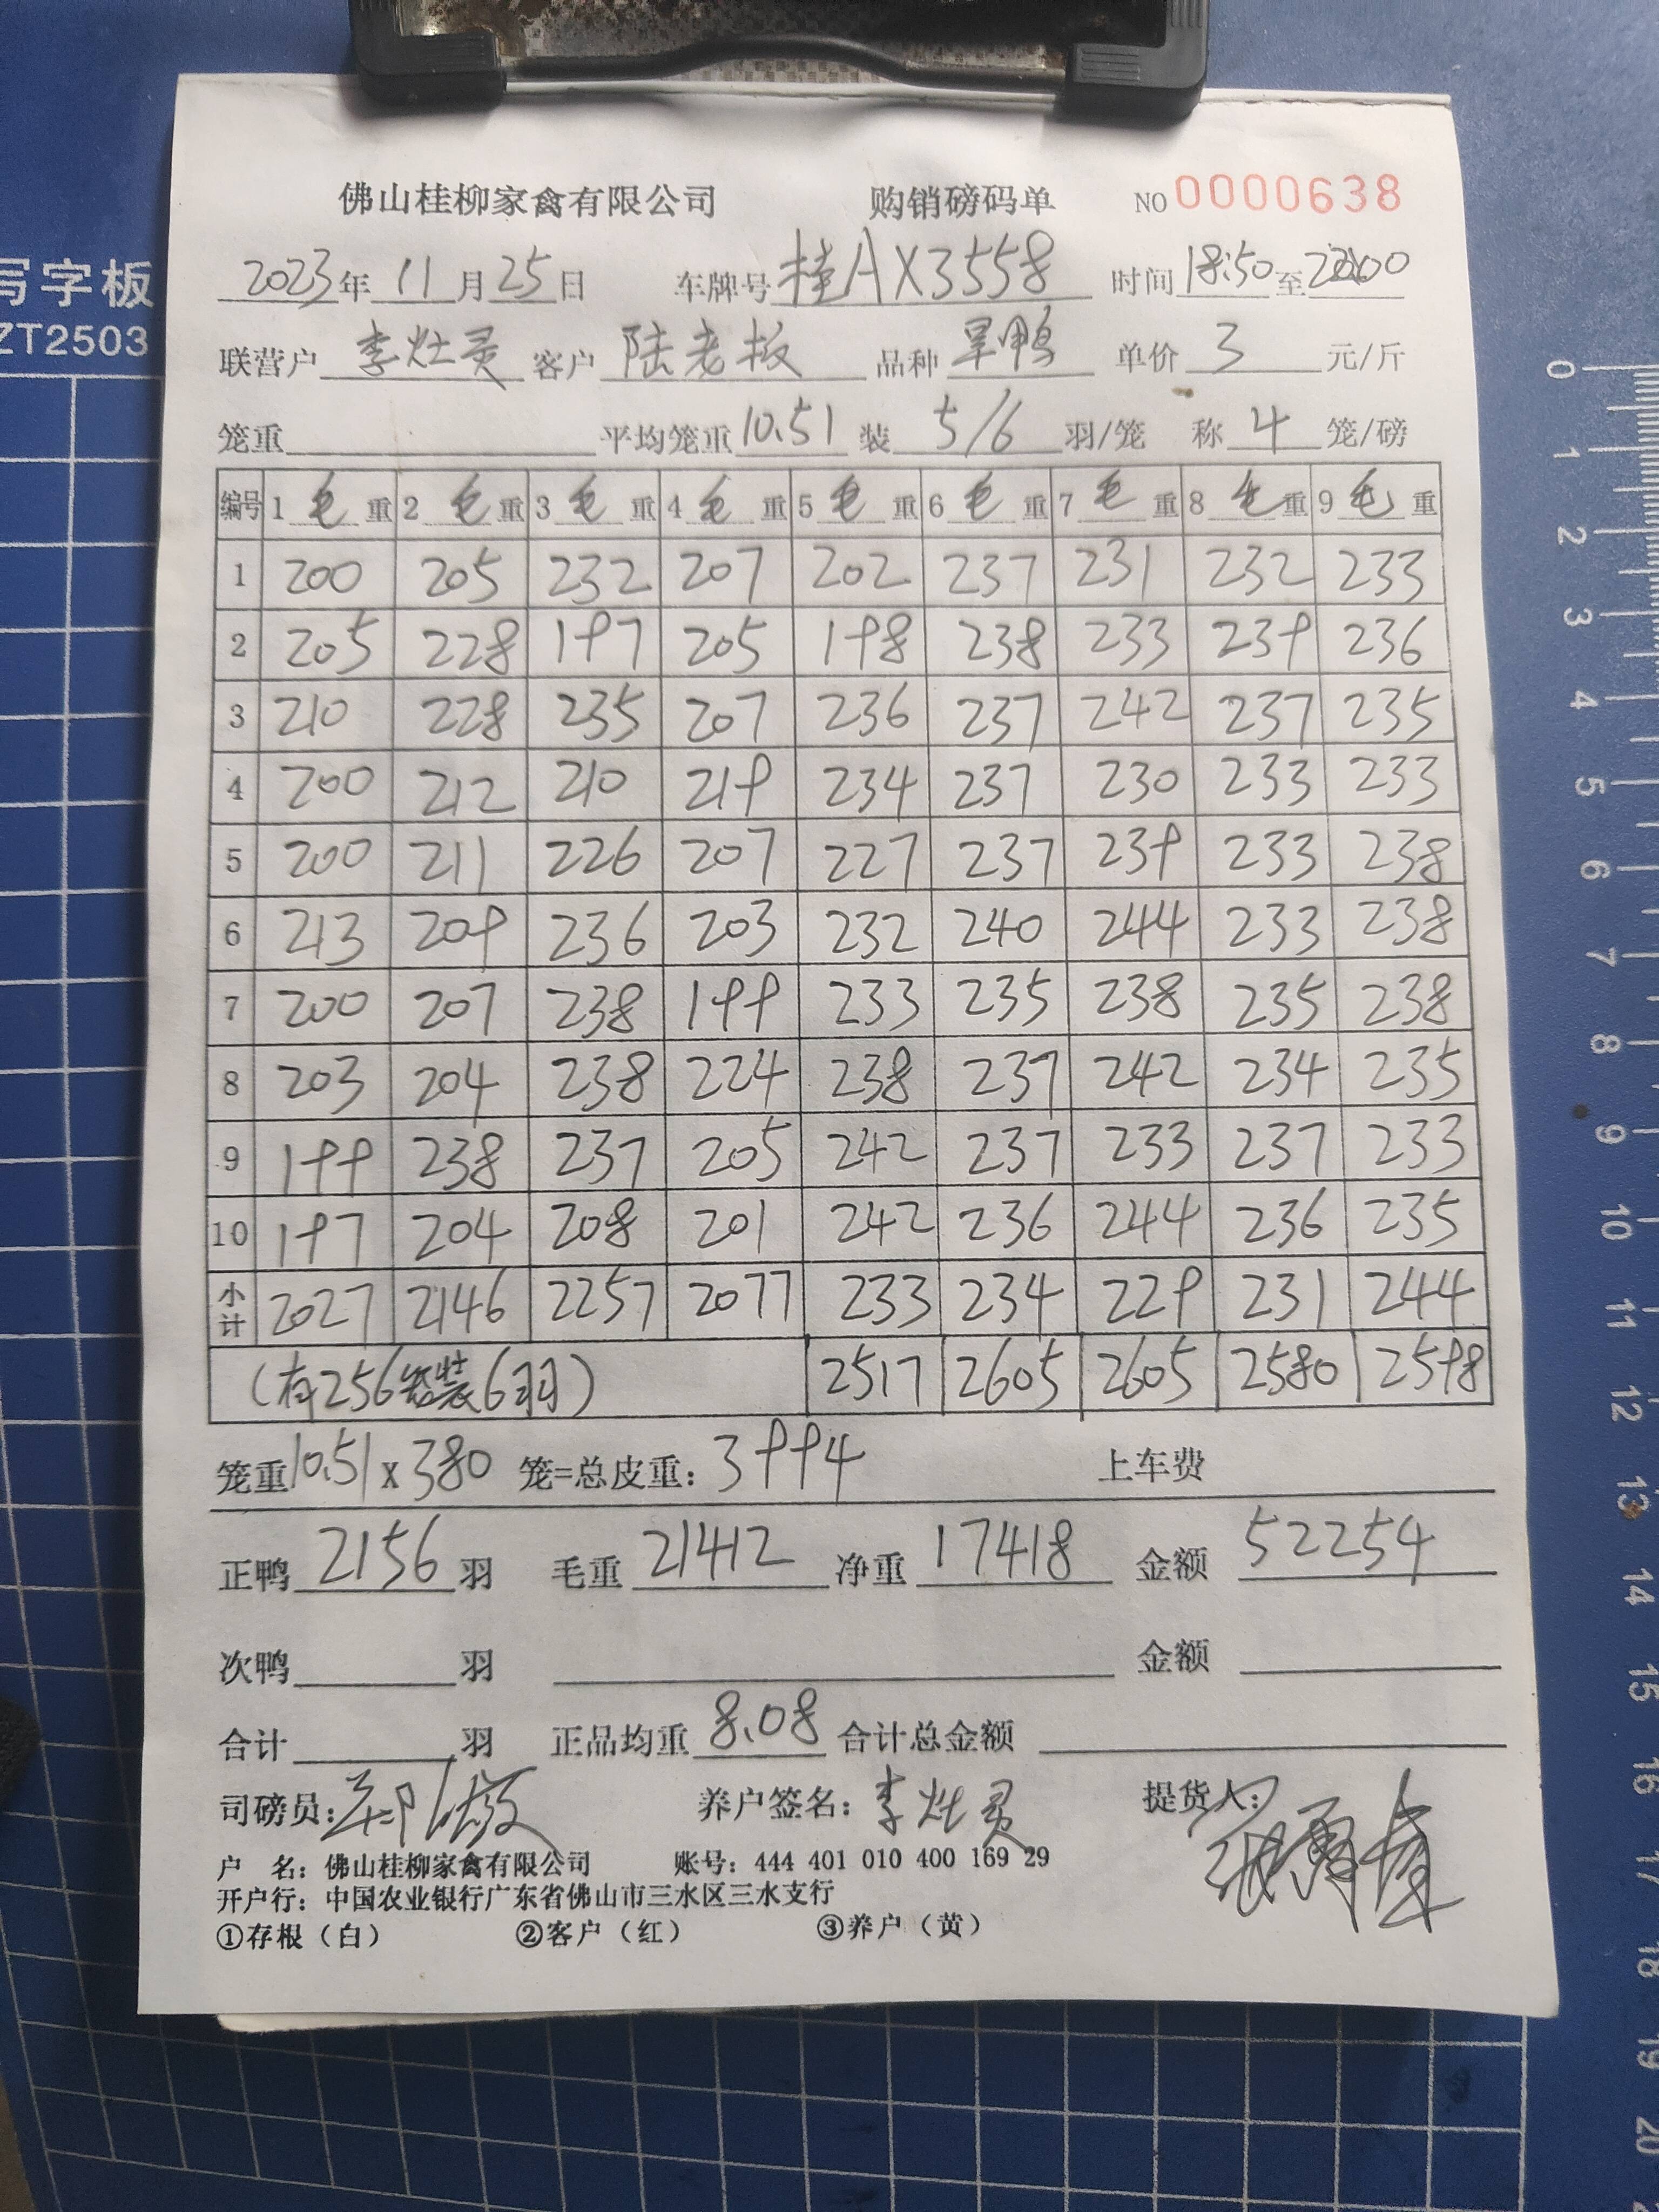 写字板
ZT2503
佛山桂柳家禽有限公司 购销磅码单 NO 0000638
2023年 11月 25日 车牌号 桂AX3558 时间 18:50 至
联营户 李灶灵 客户 陆老板 品种 旱鸭 单价 3 元/斤
笼重 平均笼重 10.51 装 5/6 羽/笼 称 4 笼/磅
编号 1 毛 重 2 毛 重 3 毛 重 4 毛 重 5 毛 重 6 毛 重 7 毛 重 8 毛 重 9 毛 重
1 200 205 232 207 202 237 231 232 233
2 205 228 197 205 198 238 233 239 236
3 210 228 235 207 236 237 242 237 235
4 200 212 210 219 234 237 230 233 233
5 200 211 226 207 227 237 239 233 238
6 213 209 236 203 232 240 244 233 238
7 200 207 238 199 233 235 238 235 238
8 203 204 238 224 238 237 242 234 235
9 199 238 237 205 242 237 233 237 233
10 197 204 208 201 242 236 244 236 235
小计 2027 2146 2257 2077 233 234 229 231 244
(有256笼装6羽) 2517 2605 2605 2580 2598
笼重 10.51 X 380 笼=总皮重: 3994 上车费
正鸭 2156 羽 毛重 21412 净重 17418 金额 52254
次鸭 羽 金额
合计 羽 正品均重 8.08 合计总金额
司磅员: 养户签名: 李灶灵 提货人:
户 名: 佛山桂柳家禽有限公司 账号: 444 401 010 400 169 29
开户行: 中国农业银行广东省佛山市三水区三水支行
①存根（白） ②客户（红） ③养户（黄）
0
1
2
3
4
5
6
7
8
9
10
11
12
13
14
15
16
17
18
19
20